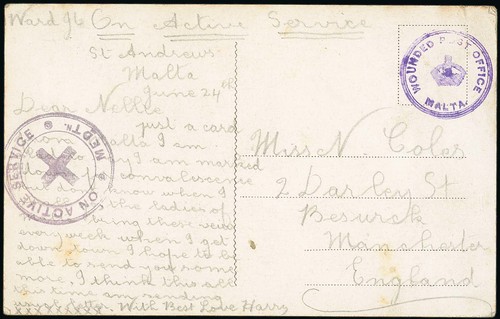 Ward J6 On Active Service
St Andrews
Malta
June 24th
Dear Nellie
just a card
Malta I am
I am marked
convalescence
know when I
the ladies of
bring these
every week when I get
down town I hope to be
able to send you some
more. I think this all
this time am sending
With Best Love Harry
xxxxxxxxxx
WOUNDED POST OFFICE
MALTA.
ON ACTIVE SERVICE
MEDTN.
Miss N. Coles
2 Darley St
Beswick
Manchester
England